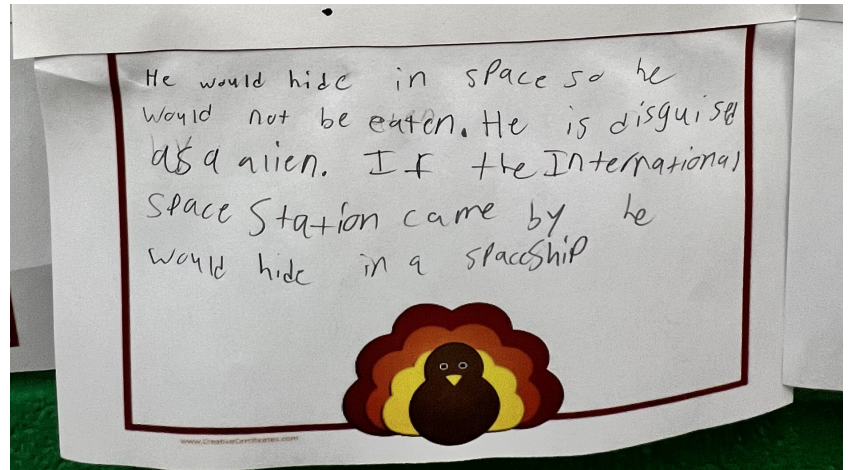 He would hide in space so he
would not be eaten. He is disguised
as a alien. If the International
Space Station came by he
would hide in a spaceship
www.CreativeCertificates.com